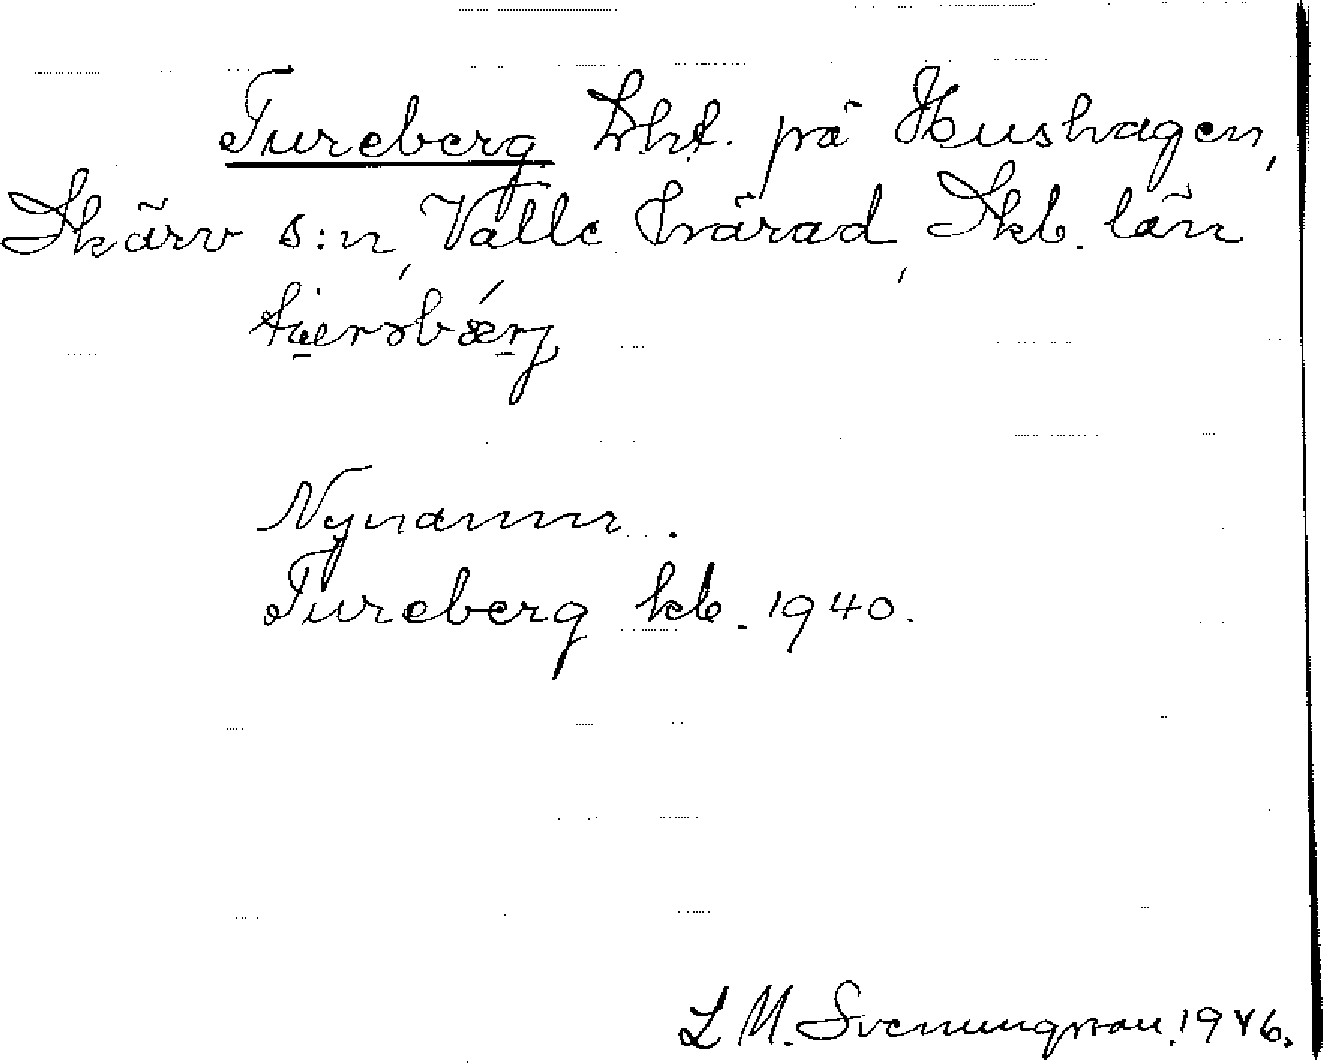 Tureberg Lht. på Hushagen,
Skärv s:n, Valle härad, Skb. län
Nynamn.
Tureberg kb. 1940.
L M. Svenungsson. 1946.